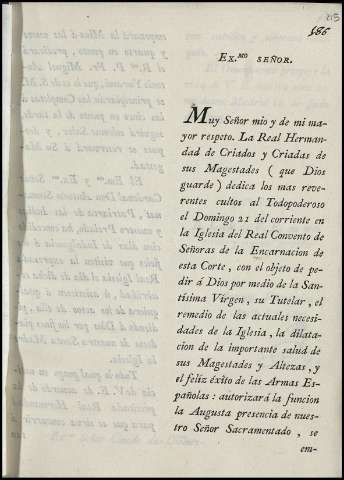 186
Ex.mo SEÑOR.
Muy Señor mio y de mi ma-
yor respeto. La Real Herman-
dad de Criados y Criadas de
sus Magestades ( que Dios
guarde ) dedica los mas reve-
rentes cultos al Todopoderoso
el Domingo 21 del corriente en
la Iglesia del Real Convento de
Señoras de la Encarnacion de
esta Corte, con el objeto de pe-
dir á Dios por medio de la San-
tísima Virgen, su Tutelar, el
remedio de las actuales necesi-
dades de la Iglesia, la dilata-
cion de la importante salud de
sus Magestades y Altezas, y
el feliz éxito de las Armas Es-
pañolas: autorizará la funcion
la Augusta presencia de nues-
tro Señor Sacramentado, se
em-